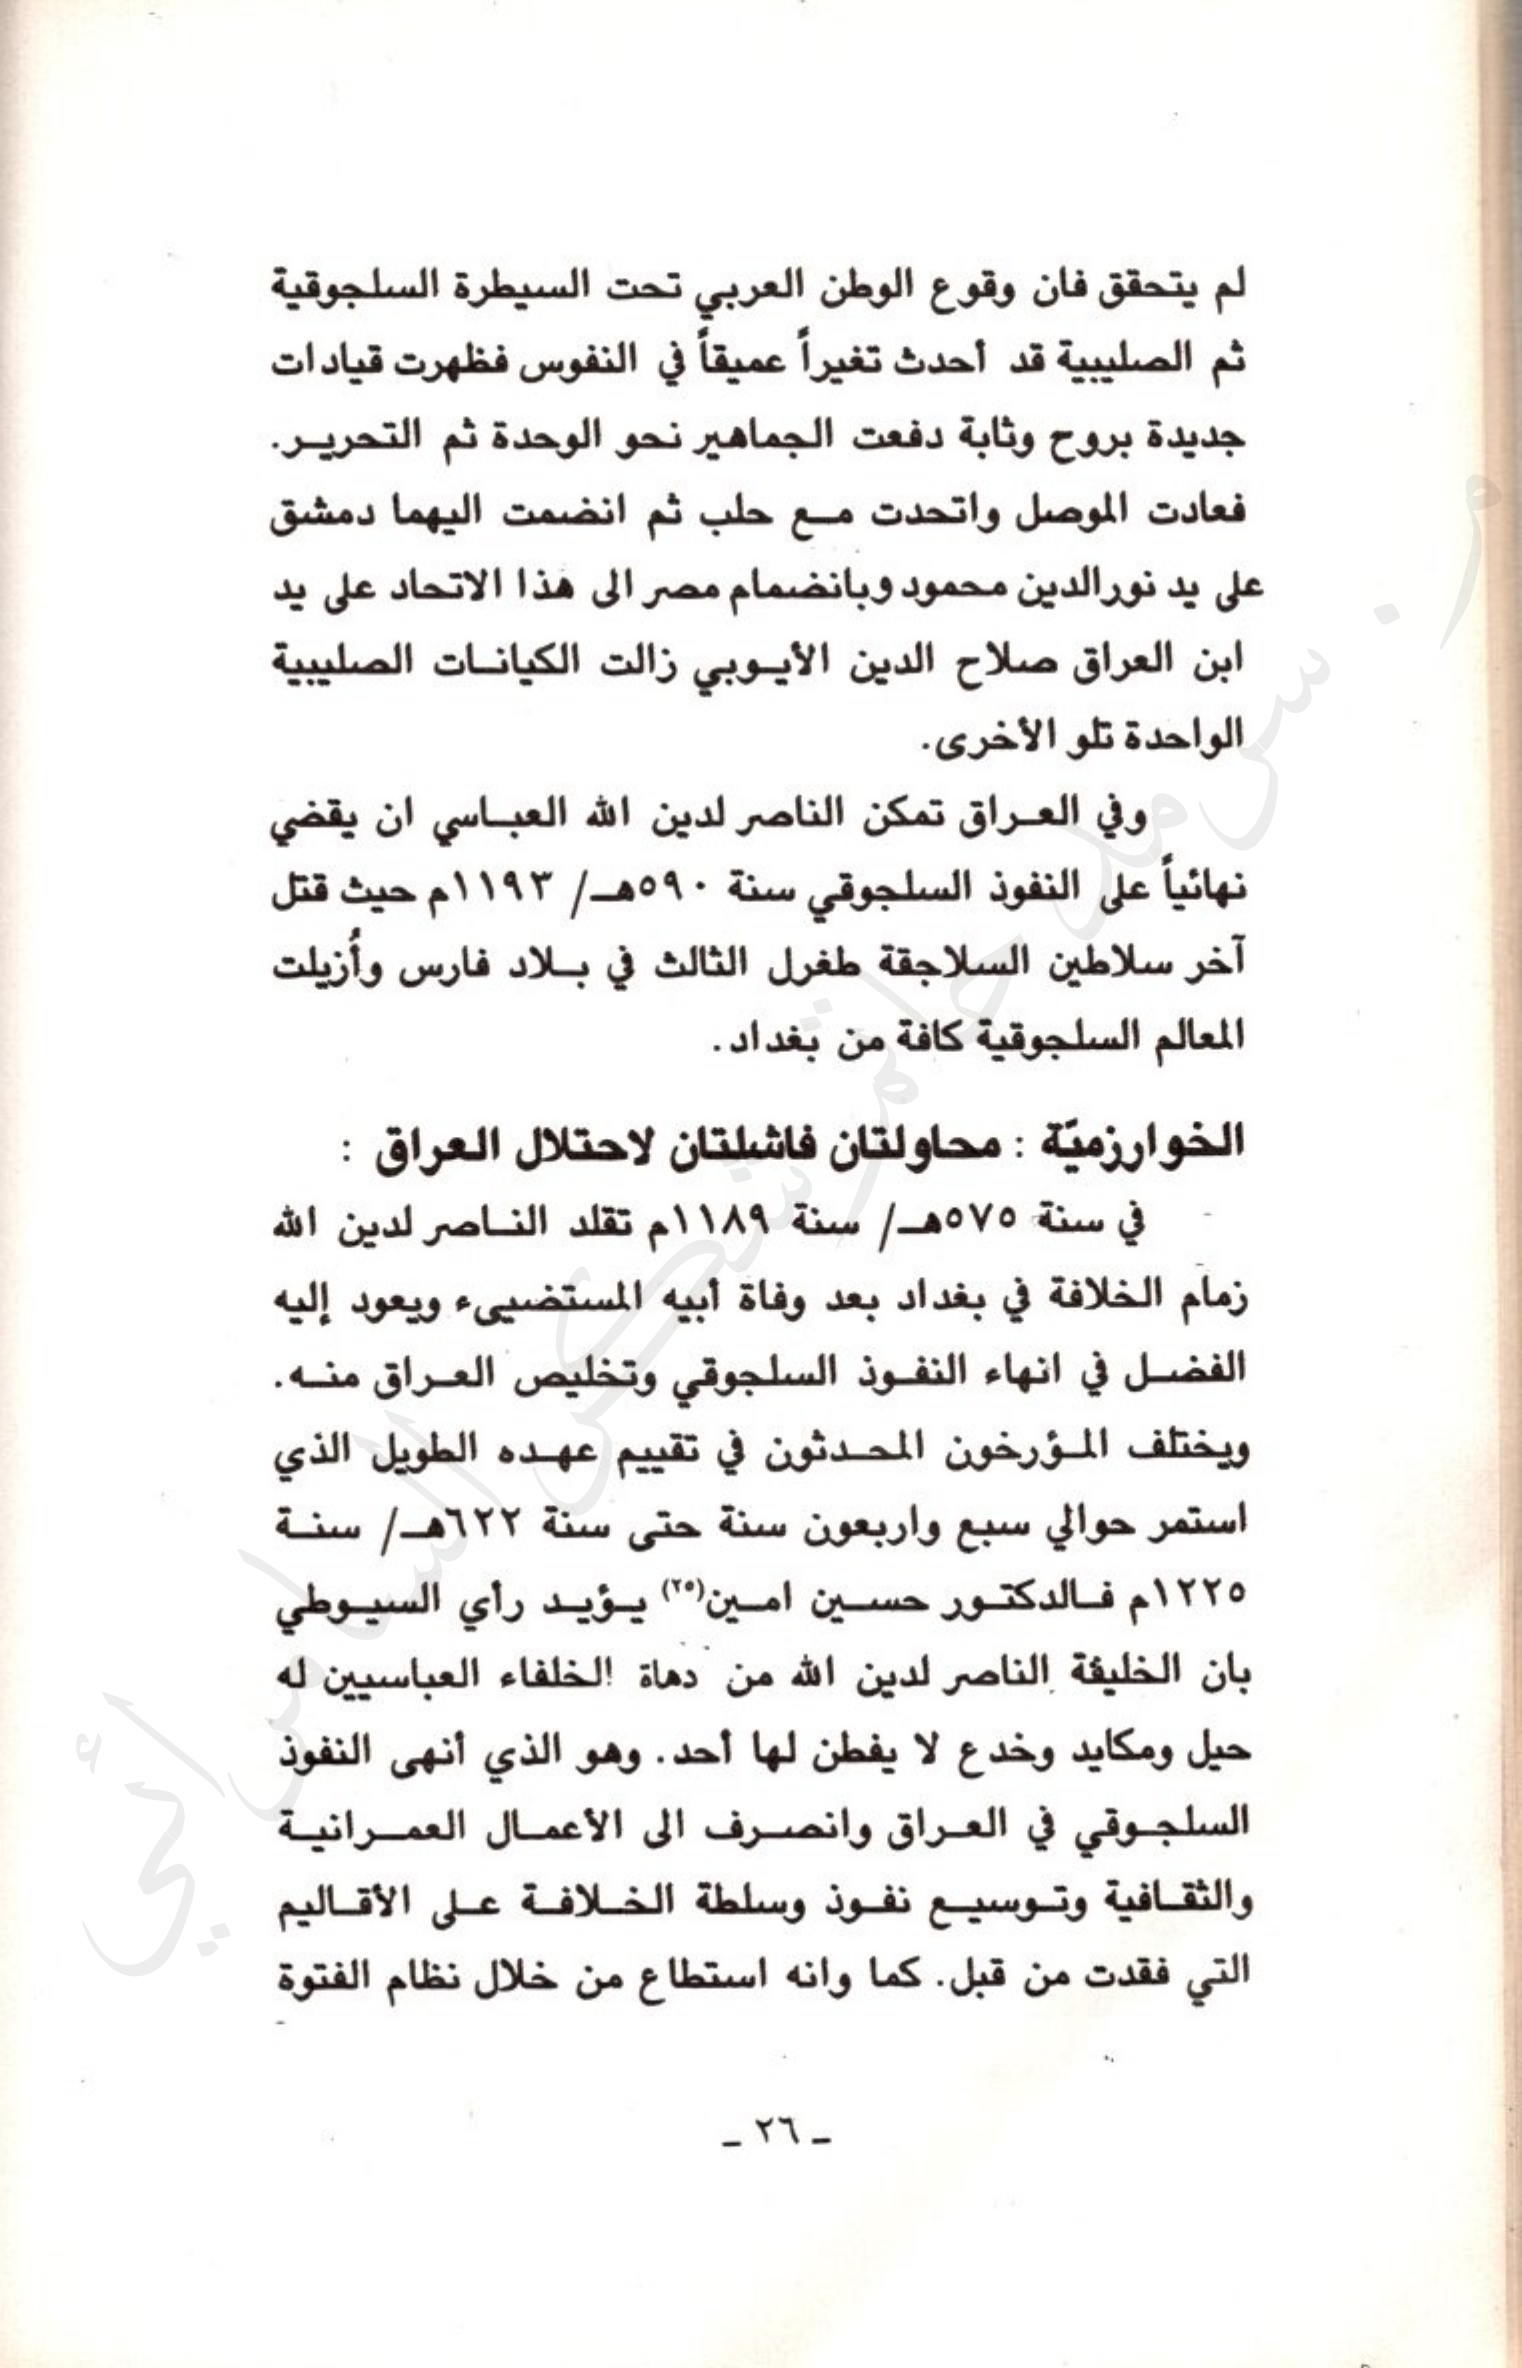 لم يتحقق فان وقوع الوطن العربي تحت السيطرة السلجوقية
ثم الصليبية قد أحدث تغيراً عميقاً في النفوس فظهرت قيادات
جديدة بروح وثابة دفعت الجماهير نحو الوحدة ثم التحرير.
فعادت الموصل واتحدت مع حلب ثم انضمت اليهما دمشق
على يد نورالدين محمود وبانضمام مصر الى هذا الاتحاد على يد
ابن العراق صلاح الدين الأيوبي زالت الكيانات الصليبية
الواحدة تلو الأخرى.
وفي العراق تمكن الناصر لدين الله العباسي ان يقضي
نهائياً على النفوذ السلجوقي سنة ٥٩٠هـ/ ١١٩٣م حيث قتل
آخر سلاطين السلاجقة طغرل الثالث في بلاد فارس وأُزيلت
المعالم السلجوقية كافة من بغداد.
الخوارزميّة : محاولتان فاشلتان لاحتلال العراق :
في سنة ٥٧٥هـ/ سنة ١١٨٩م تقلد الناصر لدين الله
زمام الخلافة في بغداد بعد وفاة أبيه المستضييء ويعود إليه
الفضل في انهاء النفوذ السلجوقي وتخليص العراق منه.
ويختلف المؤرخون المحدثون في تقييم عهده الطويل الذي
استمر حوالي سبع واربعون سنة حتى سنة ٦٢٢هـ/ سنة
١٢٢٥م فالدكتور حسين امين(٢٥) يؤيد رأي السيوطي
بان الخليفة الناصر لدين الله من دهاة الخلفاء العباسيين له
حيل ومكايد وخدع لا يفطن لها أحد. وهو الذي أنهى النفوذ
السلجوقي في العراق وانصرف الى الأعمال العمرانية
والثقافية وتوسيع نفوذ وسلطة الخلافة على الأقاليم
التي فقدت من قبل. كما وانه استطاع من خلال نظام الفتوة
ـ ٢٦ ـ